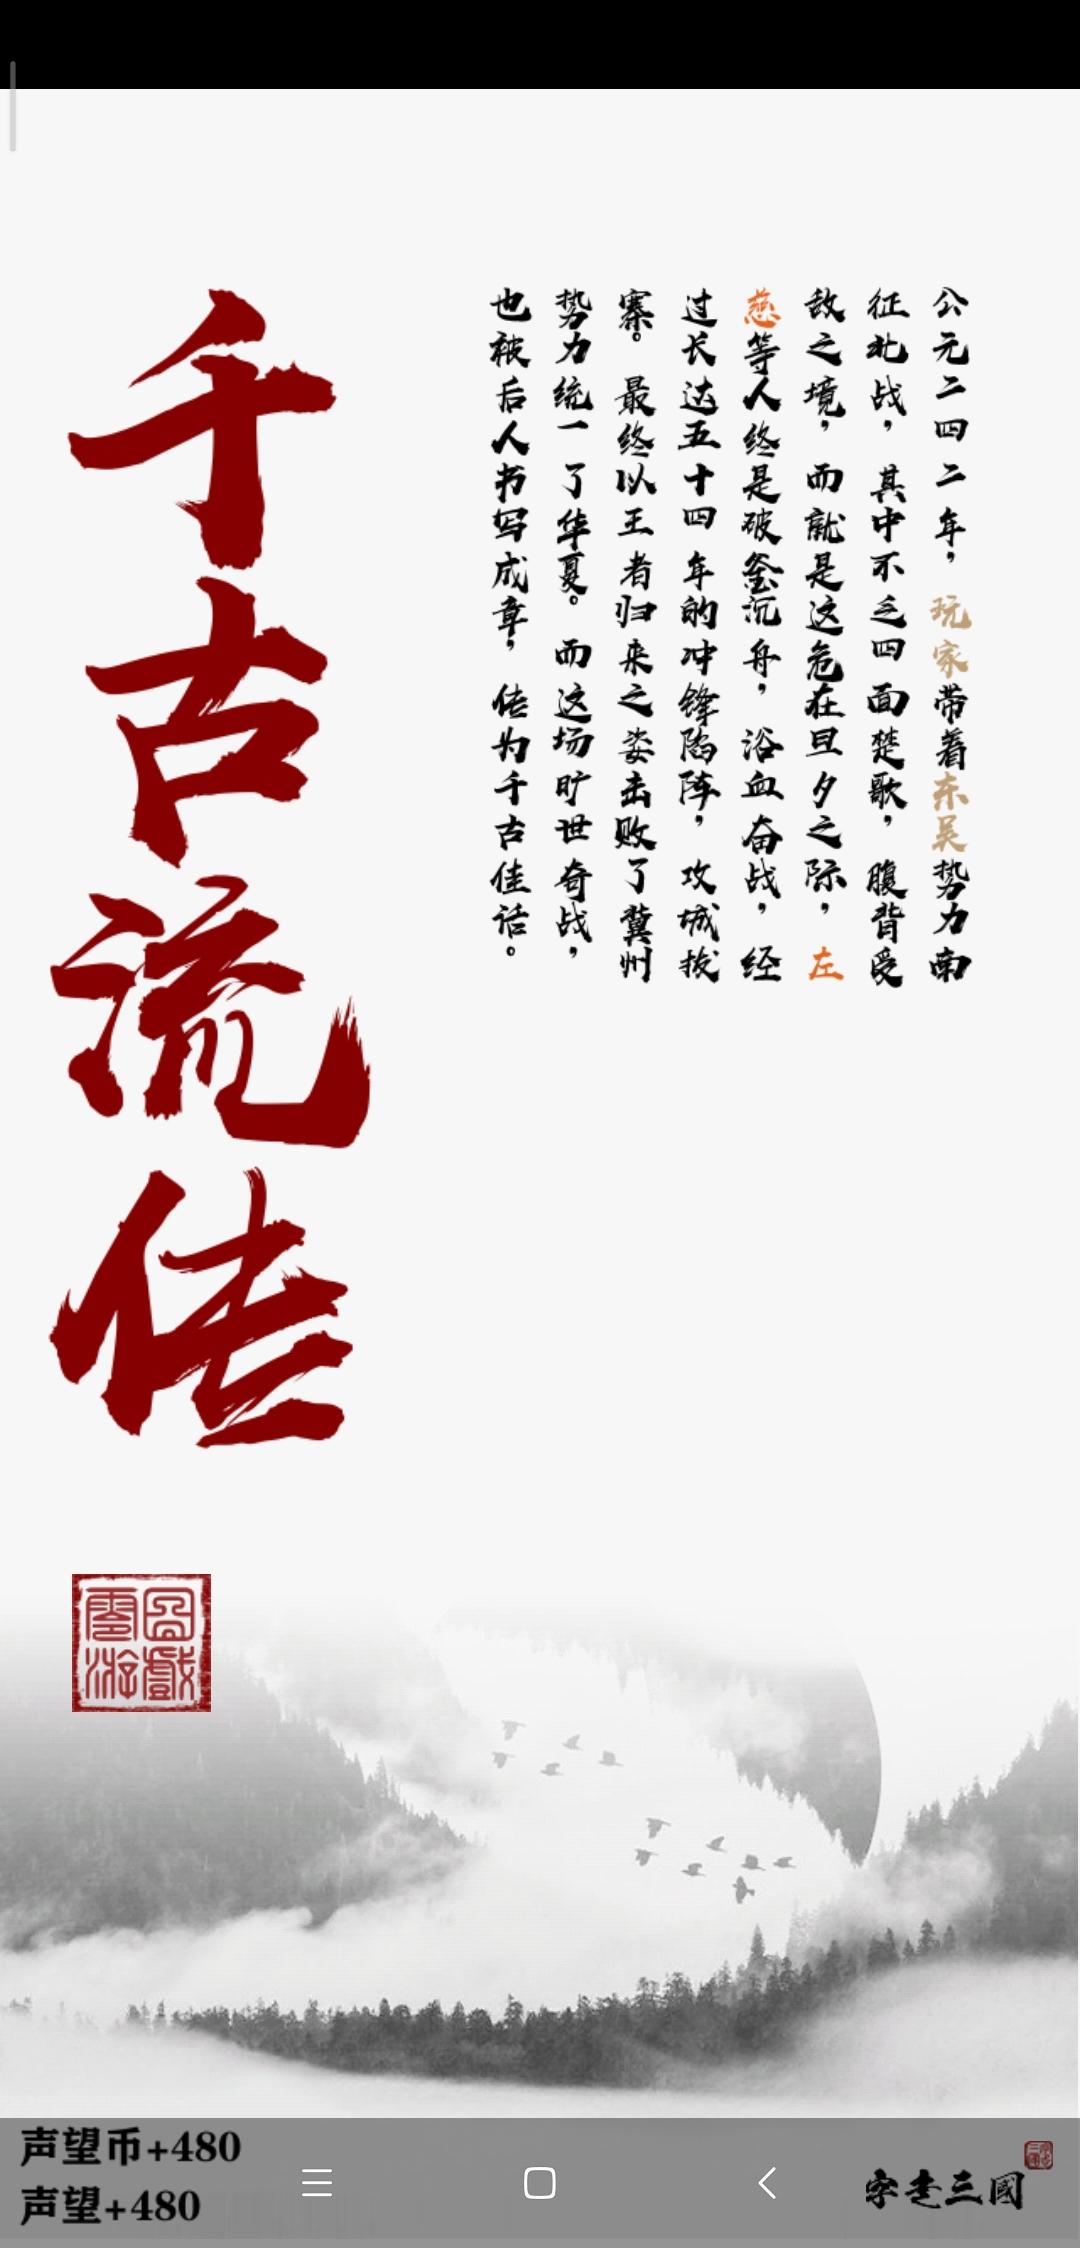 公元二四二年，玩家带着东吴势力南
征北战，其中不乏四面楚歌，腹背受
敌之境，而就是这危在旦夕之际，左
慈等人终是破釜沉舟，浴血奋战，经
过长达五十四年的冲锋陷阵，攻城拔
寨。最终以王者归来之姿击败了冀州
势力统一了华夏。而这场旷世奇战，
也被后人书写成章，传为千古佳话。
千古流传
声望币+480
声望+480
字走三國